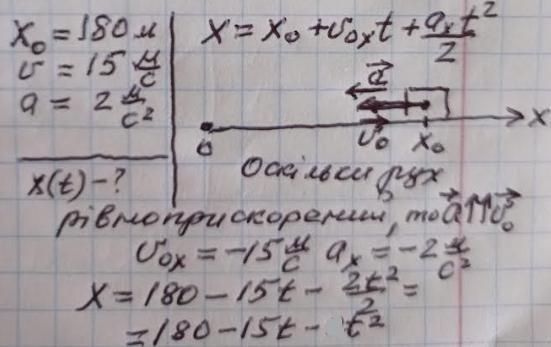 x₀ = 180 м
v = 15 м/с
a = 2 м/с²
x(t) – ?
x = x₀ + v₀ₓt + aₓt²/2
a⃗
0 v₀ x₀ x
Оскільки рух
рівноприскорений, то a⃗↑↑v⃗₀
v₀ₓ = –15 м/с aₓ = –2 м/с²
x = 180 – 15t – 2t²/2 =
= 180 – 15t – t²